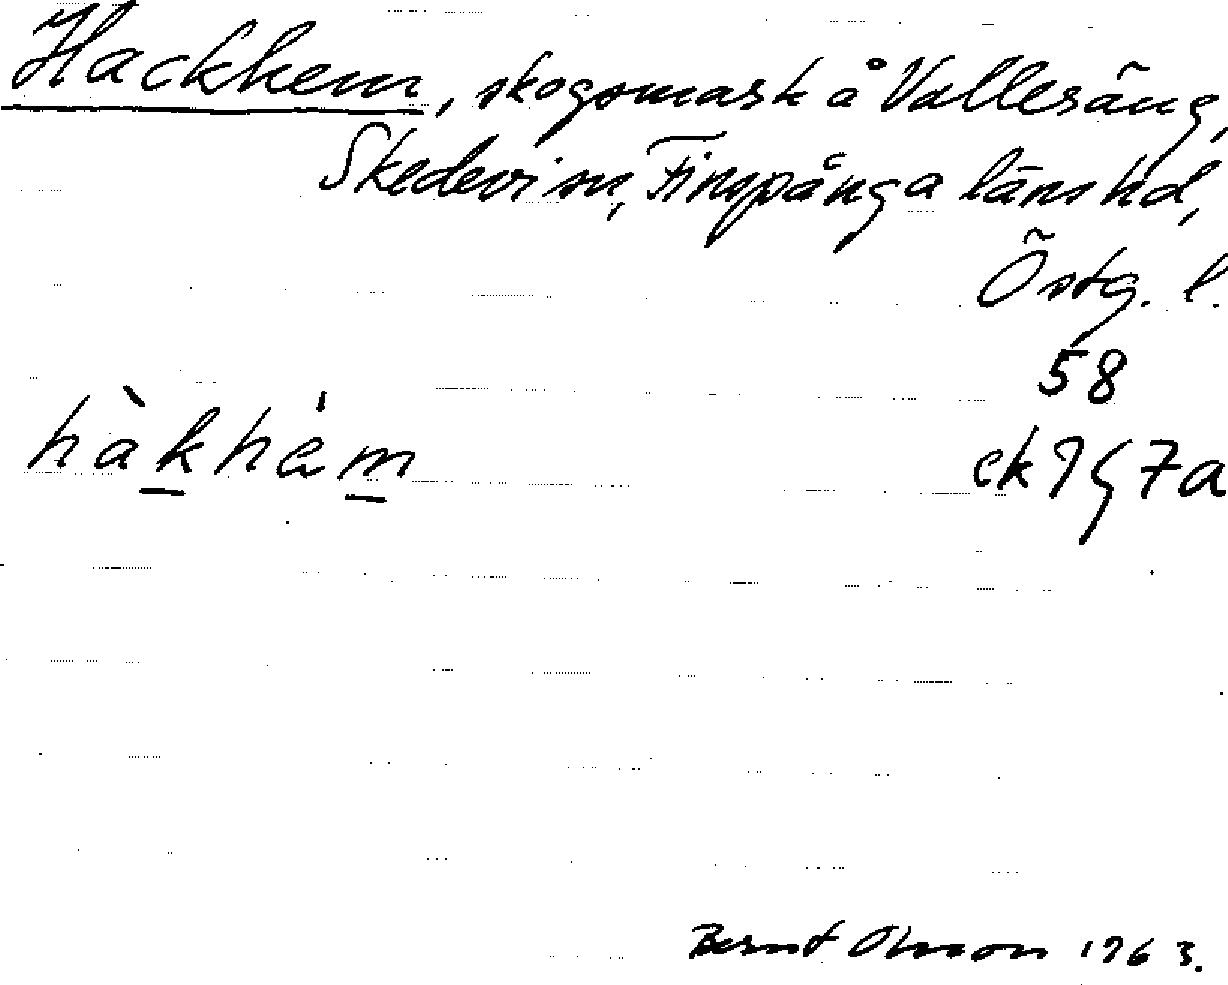 Hackhem, skogsmark å Vallesäng,
Skedevi sn, Finspånga läns hd,
Östg. l.
58
hàkhèm
ek 9G7a
Bernt Olsson 1963.